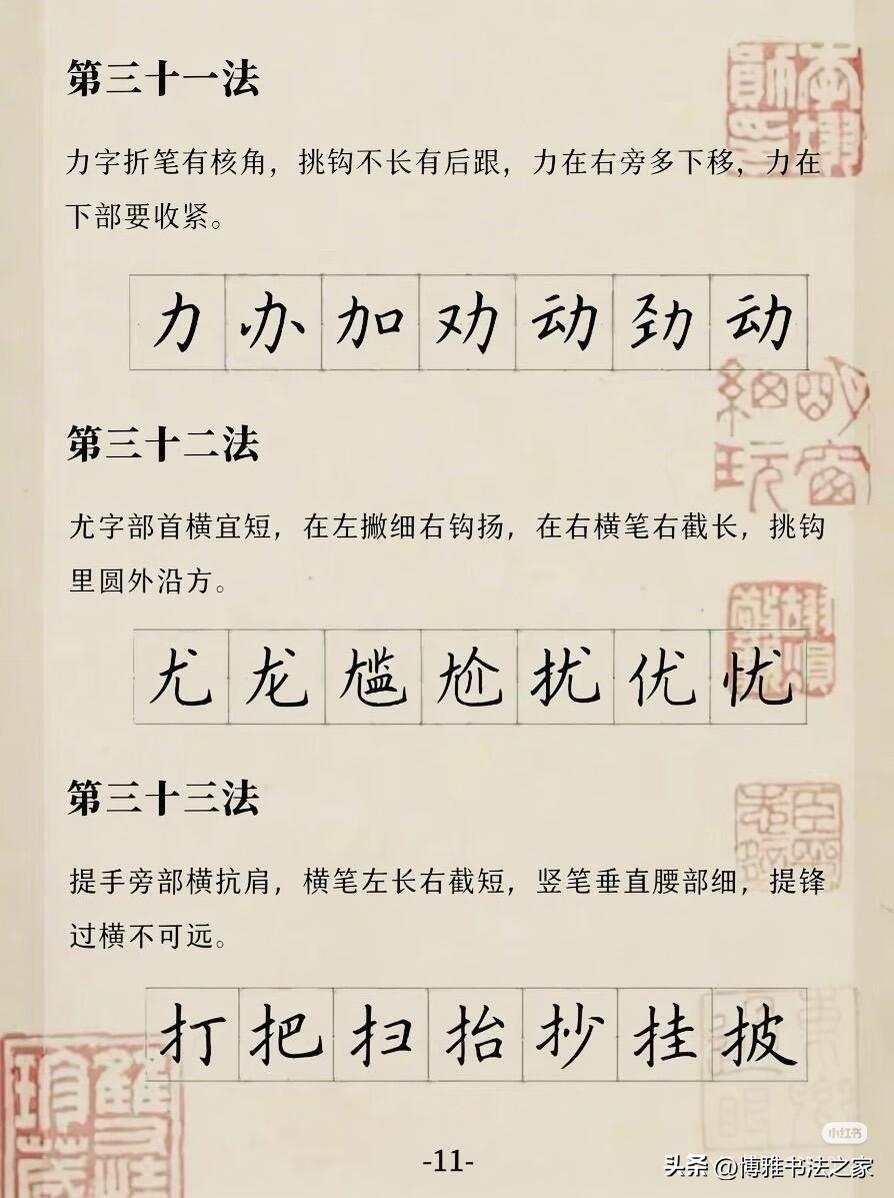 第三十一法
力字折笔有核角，挑钩不长有后跟，力在右旁多下移，力在
下部要收紧。
力办加劝动劲动
第三十二法
尤字部首横宜短，在左撇细右钩扬，在右横笔右截长，挑钩
里圆外沿方。
尤龙尴尬扰优忧
第三十三法
提手旁部横抗肩，横笔左长右截短，竖笔垂直腰部细，提锋
过横不可远。
打把扫抬抄挂披
-11-
小红书
头条 @博雅书法之家